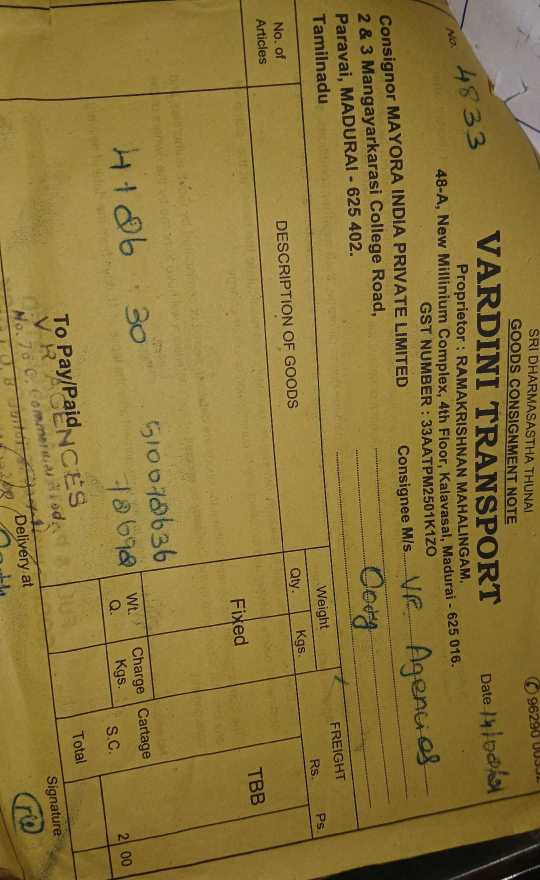 SRI DHARMASASTHA THUNAI
GOODS CONSIGNMENT NOTE
VARDINI TRANSPORT
Proprietor : RAMAKRISHNAN MAHALINGAM.
48-A, New Millinium Complex, 4th Floor, Kalavasal, Madurai - 625 016.
GST NUMBER : 33AATPM2501K1ZO
No. 4833
Date
Consignor MAYORA INDIA PRIVATE LIMITED
2 & 3 Mangayarkarasi College Road,
Paravai, MADURAI - 625 402.
Tamilnadu
Consignee M/s. VR Agencies
Ooty
No. of Articles
DESCRIPTION OF GOODS
Weight
Qty. Kgs.
FREIGHT
Rs. Ps.
Fixed
TBB
4186 30 510078636
78698
Wt. Q.
Charge Kgs.
Cartage
S.C. 2 00
Total
To Pay/Paid
V R AGENCES
Delivery at
Signature